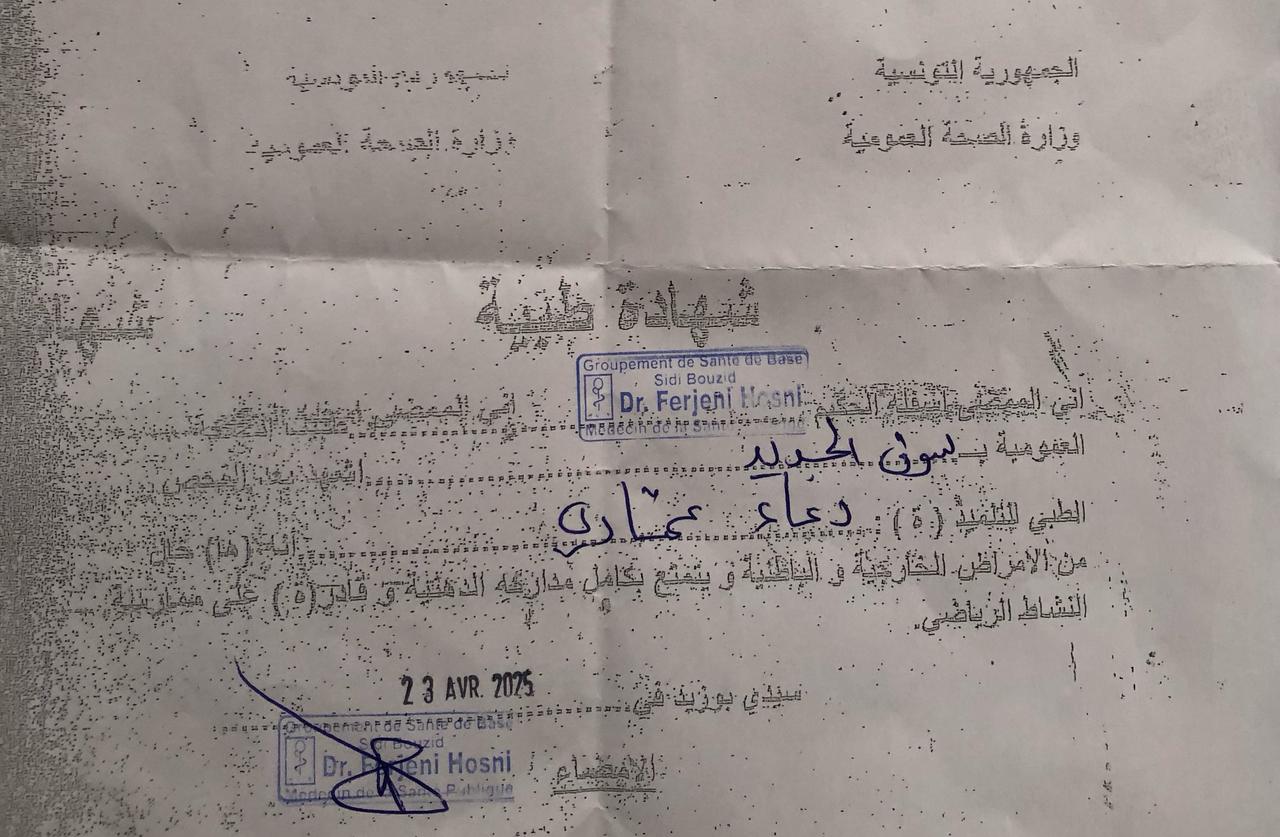 الجمهورية التونسية
وزارة الصحة العمومية
وزارة الصحة العمومية
شهادة طبية
Groupement de Santé de Base
Sidi Bouzid
Dr. Ferjeni Hosni
Médecin de la Santé
اني الممضي اسفله الحكيم
العمومية بـ سوق الجديد اشهد بعد الفحص
الطبي للتلميذ (ة) : دعاء عمّاري انه (ها) خال
من الامراض الخارجية و الباطنية و يتمتع بكامل مداركه الذهنية و قادر(ة) على ممارسة
النشاط الرياضي.
سيدي بوزيد في 23 AVR. 2025
الامضاء
Groupement de Santé de Base
Sidi Bouzid
Dr. Ferjeni Hosni
Médecin de la Santé Publique